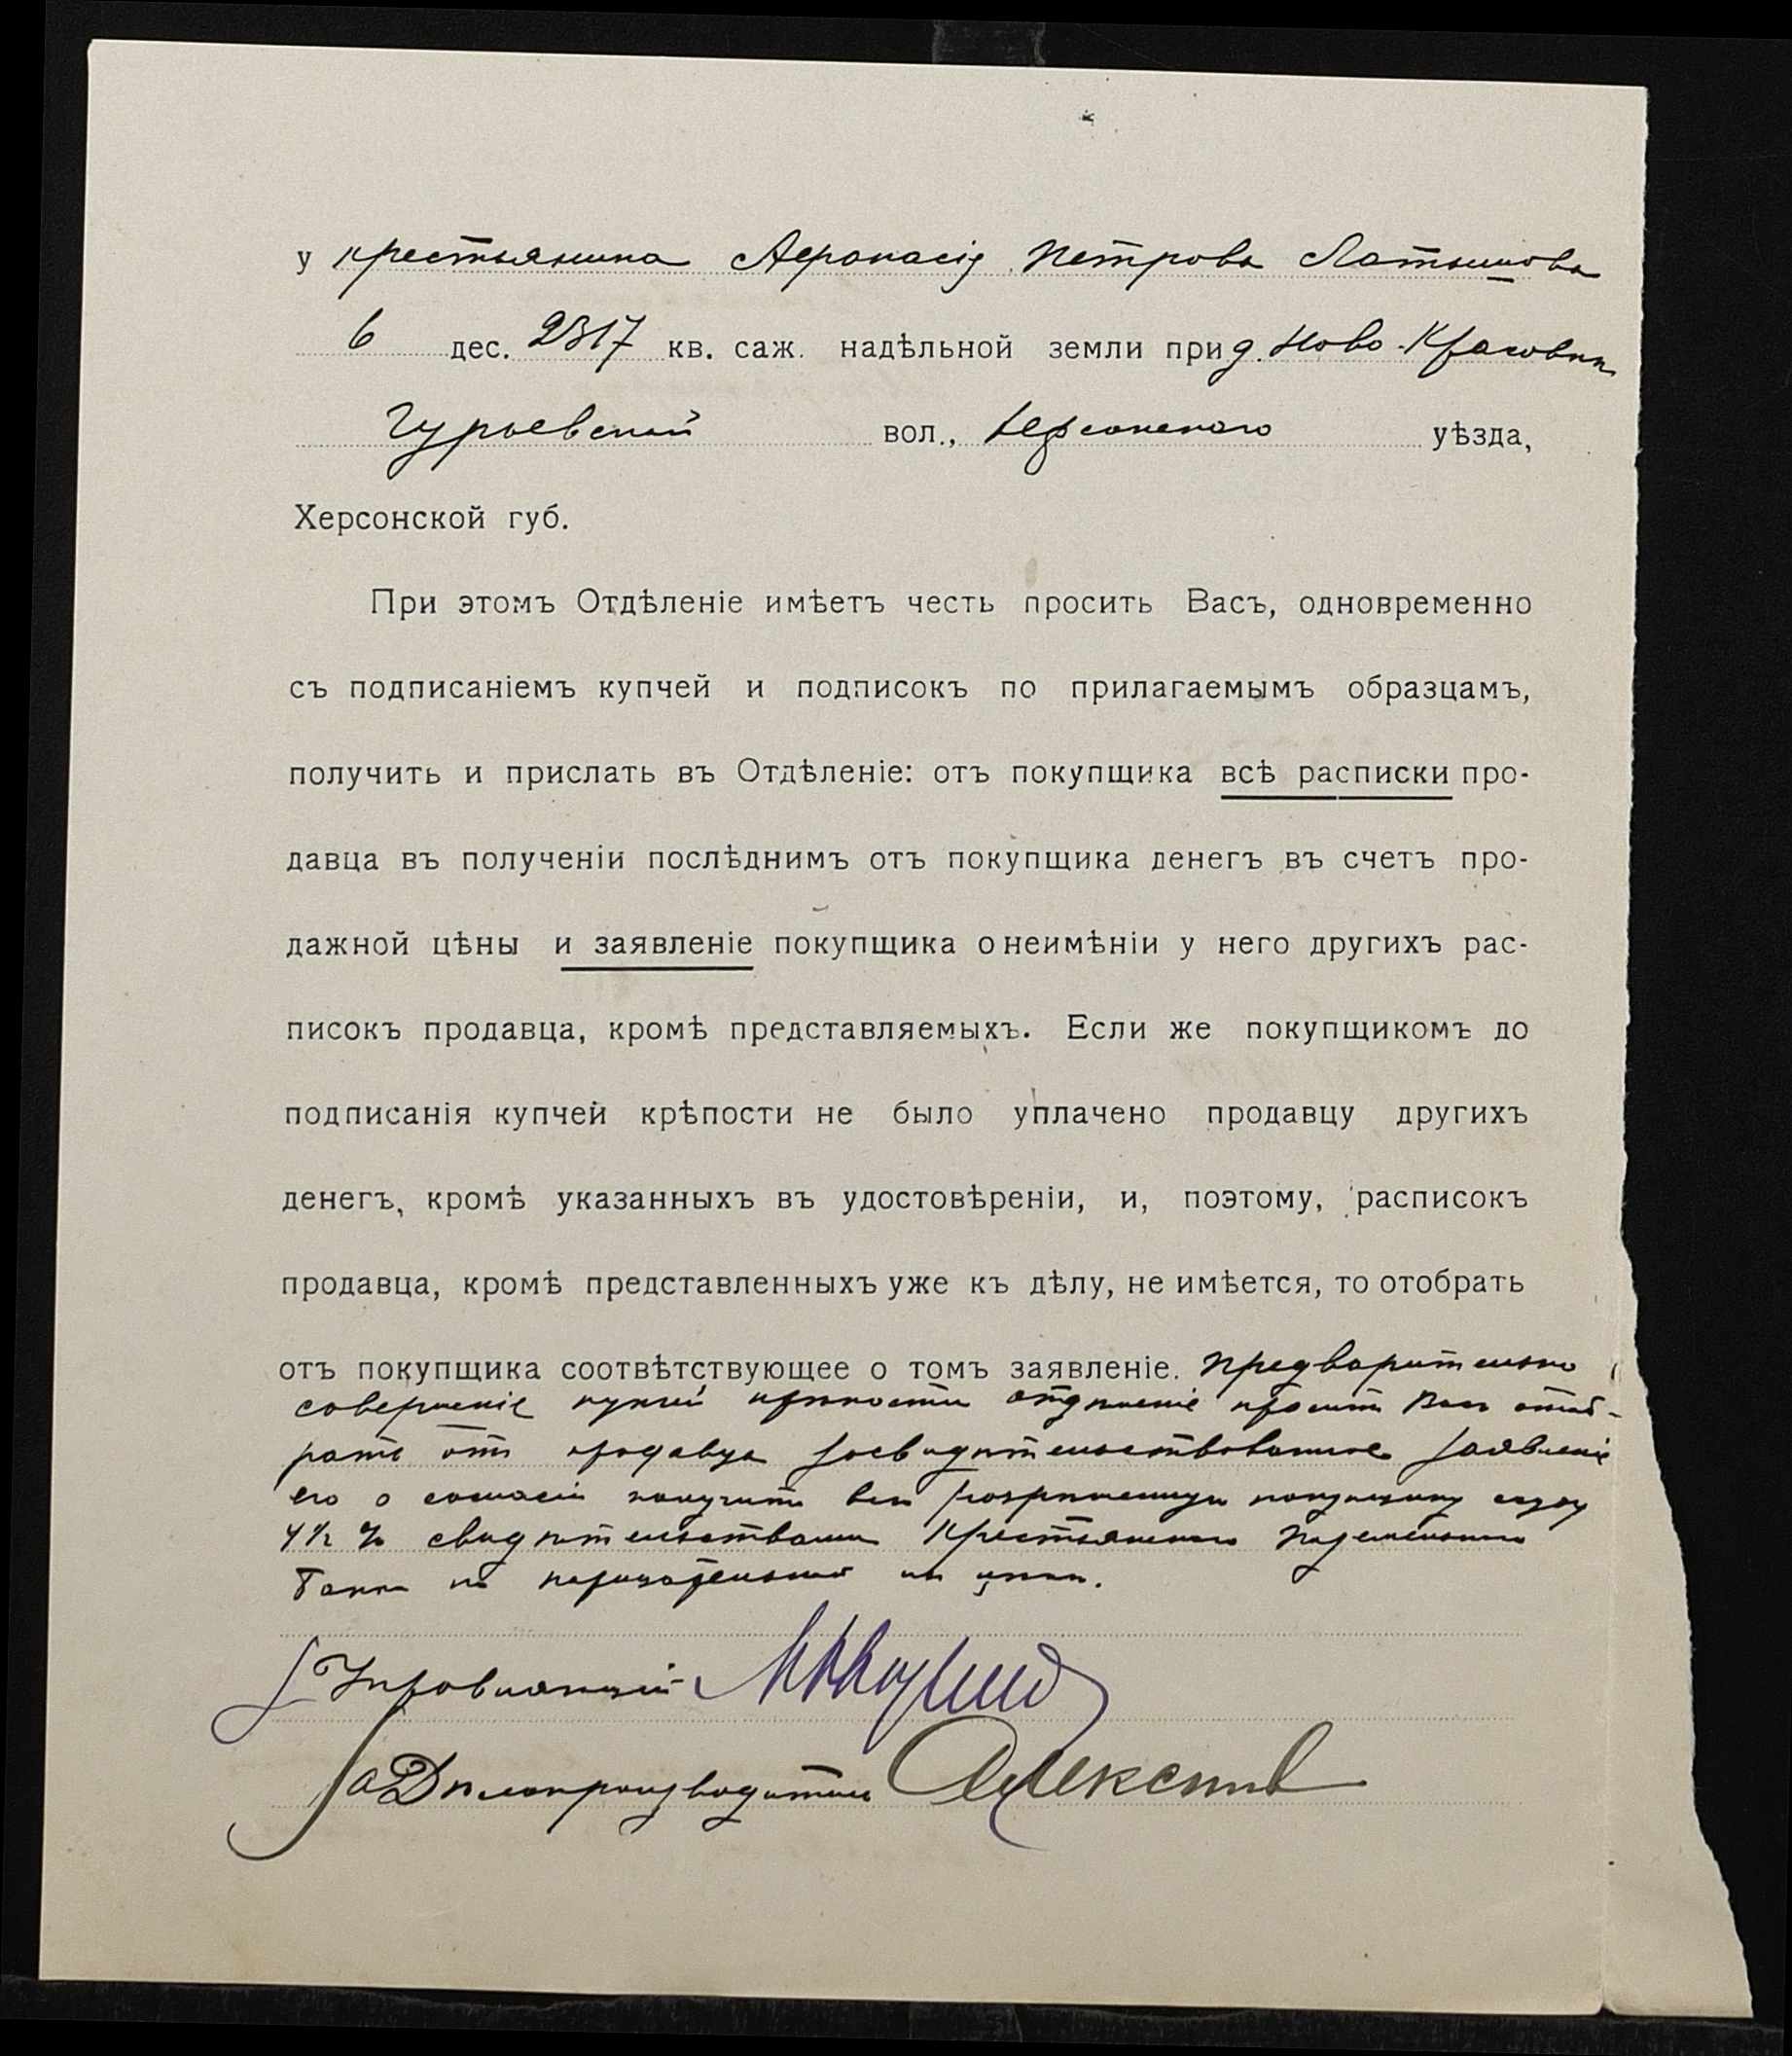 у крестьянина Афанасія Петрова Латышова
6 дес. 2317 кв. саж. надѣльной земли при д. Ново-Красовкѣ
Гурьевской вол., Херсонского уѣзда,
Херсонской губ.
При этомъ Отдѣленіе имѣетъ честь просить Васъ, одновременно
съ подписаніемъ купчей и подписокъ по прилагаемымъ образцамъ,
получить и прислать въ Отдѣленіе: отъ покупщика всѣ расписки про-
давца въ полученіи послѣднимъ отъ покупщика денегъ въ счетъ про-
дажной цѣны и заявленіе покупщика о неимѣніи у него другихъ рас-
писокъ продавца, кромѣ представляемыхъ. Если же покупщикомъ до
подписанія купчей крѣпости не было уплачено продавцу другихъ
денегъ, кромѣ указанныхъ въ удостовѣреніи, и, поэтому, расписокъ
продавца, кромѣ представленныхъ уже къ дѣлу, не имѣется, то отобрать
отъ покупщика соотвѣтствующее о томъ заявленіе. Предварительно
совершенія купчей крѣпости отдѣленіе проситъ Васъ отоб-
рать отъ продавца засвидѣтельствованное заявленіе
его о согласіи получить всю разрѣшенную покупщику ссуду
4½ % свидѣтельствами Крестьянского Поземельного
Банка по нарицательной ихъ цѣнѣ.
Управляющій
За Дѣлопроизводителя Алексѣев